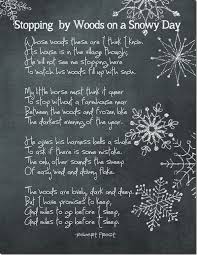 Stopping by Woods on a Snowy Day
Whose woods these are I think I know.
His house is in the village though;
He will not see me stopping here
To watch his woods fill up with snow.
My little horse must think it queer
To stop without a farmhouse near
Between the woods and frozen lake
The darkest evening of the year.
He gives his harness bells a shake
To ask if there is some mistake.
The only other sound's the sweep
Of easy wind and downy flake.
The woods are lovely, dark and deep.
But I have promises to keep,
And miles to go before I sleep,
And miles to go before I sleep.
-Robert Frost